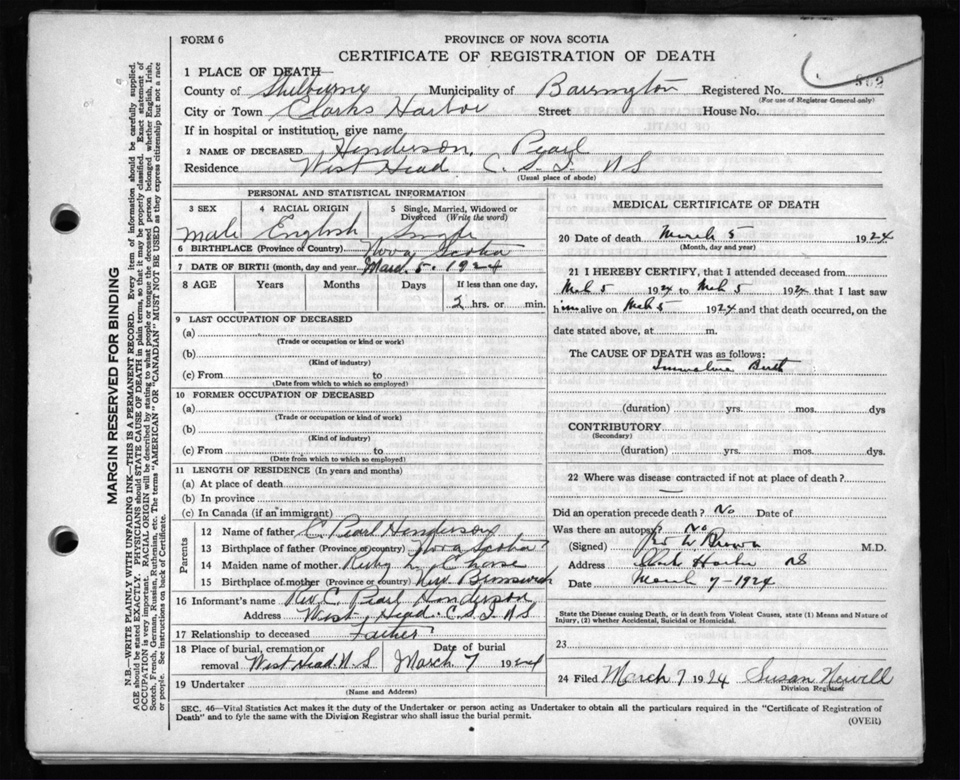 FORM 6
PROVINCE OF NOVA SCOTIA
CERTIFICATE OF REGISTRATION OF DEATH
1 PLACE OF DEATH
County of Shelburne Municipality of Barrington Registered No.
(For use of Registrar General only)
City or Town Clarks Harbor Street House No.
If in hospital or institution, give name
2 NAME OF DECEASED Henderson, Pearl
Residence West Head C. S. I. N S
(Usual place of abode)
PERSONAL AND STATISTICAL INFORMATION
3 SEX
male
4 RACIAL ORIGIN
English
5 Single, Married, Widowed or
Divorced (Write the word)
Single
6 BIRTHPLACE (Province or Country) Nova Scotia
7 DATE OF BIRTH (month, day and year) March 5. 1924
8 AGE Years Months Days If less than one day,
2 hrs. or min.
9 LAST OCCUPATION OF DECEASED
(a)
(Trade or occupation or kind or work)
(b)
(Kind of industry)
(c) From to
(Date from which to which so employed)
10 FORMER OCCUPATION OF DECEASED
(a)
(Trade or occupation or kind of work)
(b)
(Kind of industry)
(c) From to
(Date from which to which so employed)
11 LENGTH OF RESIDENCE (In years and months)
(a) At place of death
(b) In province
(c) In Canada (if an immigrant)
Parents
12 Name of father C. Pearl Henderson
13 Birthplace of father (Province or country) Nova Scotia
14 Maiden name of mother Ruby L. Chase
15 Birthplace of mother (Province or country) New Brunswick
16 Informant's name Rev. C. Pearl Henderson
Address West Head. C. S. I. N S
17 Relationship to deceased Father
18 Place of burial, cremation or
removal West Head N S
Date of burial
March 7 1924
19 Undertaker
(Name and Address)
MEDICAL CERTIFICATE OF DEATH
20 Date of death March 5 1924
(Month, day and year)
21 I HEREBY CERTIFY, that I attended deceased from
Mch 5 1924 to Mch 5 1924 that I last saw
him alive on Mch 5 1924 and that death occurred, on the
date stated above, at m.
The CAUSE OF DEATH was as follows:
Immature Birth
(duration) yrs. mos. dys
CONTRIBUTORY
(Secondary)
(duration) yrs. mos. dys.
22 Where was disease contracted if not at place of death?
Did an operation precede death? No Date of
Was there an autopsy? No
(Signed) Brown M.D.
Address Clark Harbor NS
Date March 7-1924
State the Disease causing Death, or in death from Violent Causes, state (1) Means and Nature of
Injury, (2) whether Accidental, Suicidal or Homicidal.
23
24 Filed March 7 1924 Susan Newell
Division Registrar
SEC. 46—Vital Statistics Act makes it the duty of the Undertaker or person acting as Undertaker to obtain all the particulars required in the "Certificate of Registration of
Death" and to fyle the same with the Division Registrar who shall issue the burial permit.
(OVER)
MARGIN RESERVED FOR BINDING
N.B.—WRITE PLAINLY WITH UNFADING INK—THIS IS A PERMANENT RECORD. Every item of information should be carefully supplied.
AGE should be stated EXACTLY. PHYSICIANS should STATE CAUSE OF DEATH in plain terms, so that it may be properly classified. Exact statement of
OCCUPATION is very important. RACIAL ORIGIN will be described by stating to what people or tongue the deceased person belonged whether English, Irish,
Scotch, French, German, Russian, Ruthenian, etc. The terms "AMERICAN" OR "CANADIAN" MUST NOT BE USED as they express citizenship but not a race
or people. See instructions on back of Certificate.